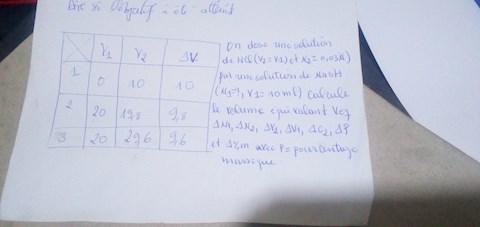 Dire si l'objectif a été atteint
V1 V2 ΔV
1 0 10 10
2 20 19,8 9,8
3 20 29,6 9,6
On dose une solution
de HCl (V2 = V1) et N2 = 0,03N)
par une solution de NaOH
(N1=?, V1 = 10 ml) calcule
le volume équivalant Veq
ΔN1, ΔN2, ΔV2, ΔV1, ΔC2, ΔP
et Δ%m avec P = pourcentage
massique